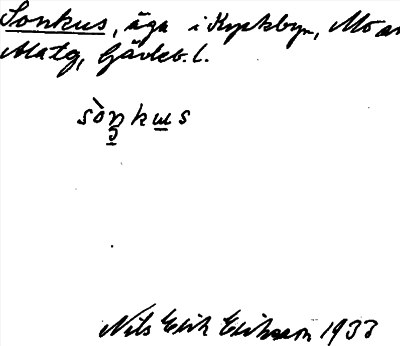 Sonkus, äga i Kyrkbyn, Mo an
Matg, Gävleb. l.
sòŋkɯs
Nils Erik Eriksson 1933